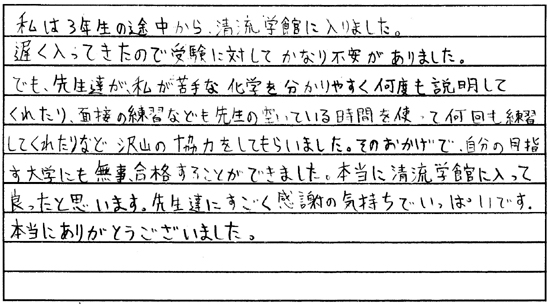 私は3年生の途中から、清流学館に入りました。
遅く入ってきたので受験に対してかなり不安がありました。
でも、先生達が、私が苦手な化学を分かりやすく何度も説明して
くれたり、面接の練習なども先生の空いている時間を使って何回も練習
してくれたりなど沢山の協力をしてもらいました。そのおかげで、自分の目指
す大学にも無事、合格することができました。本当に清流学館に入って
良ったと思います。先生達にすごく感謝の気持ちでいっぱいです。
本当にありがとうございました。